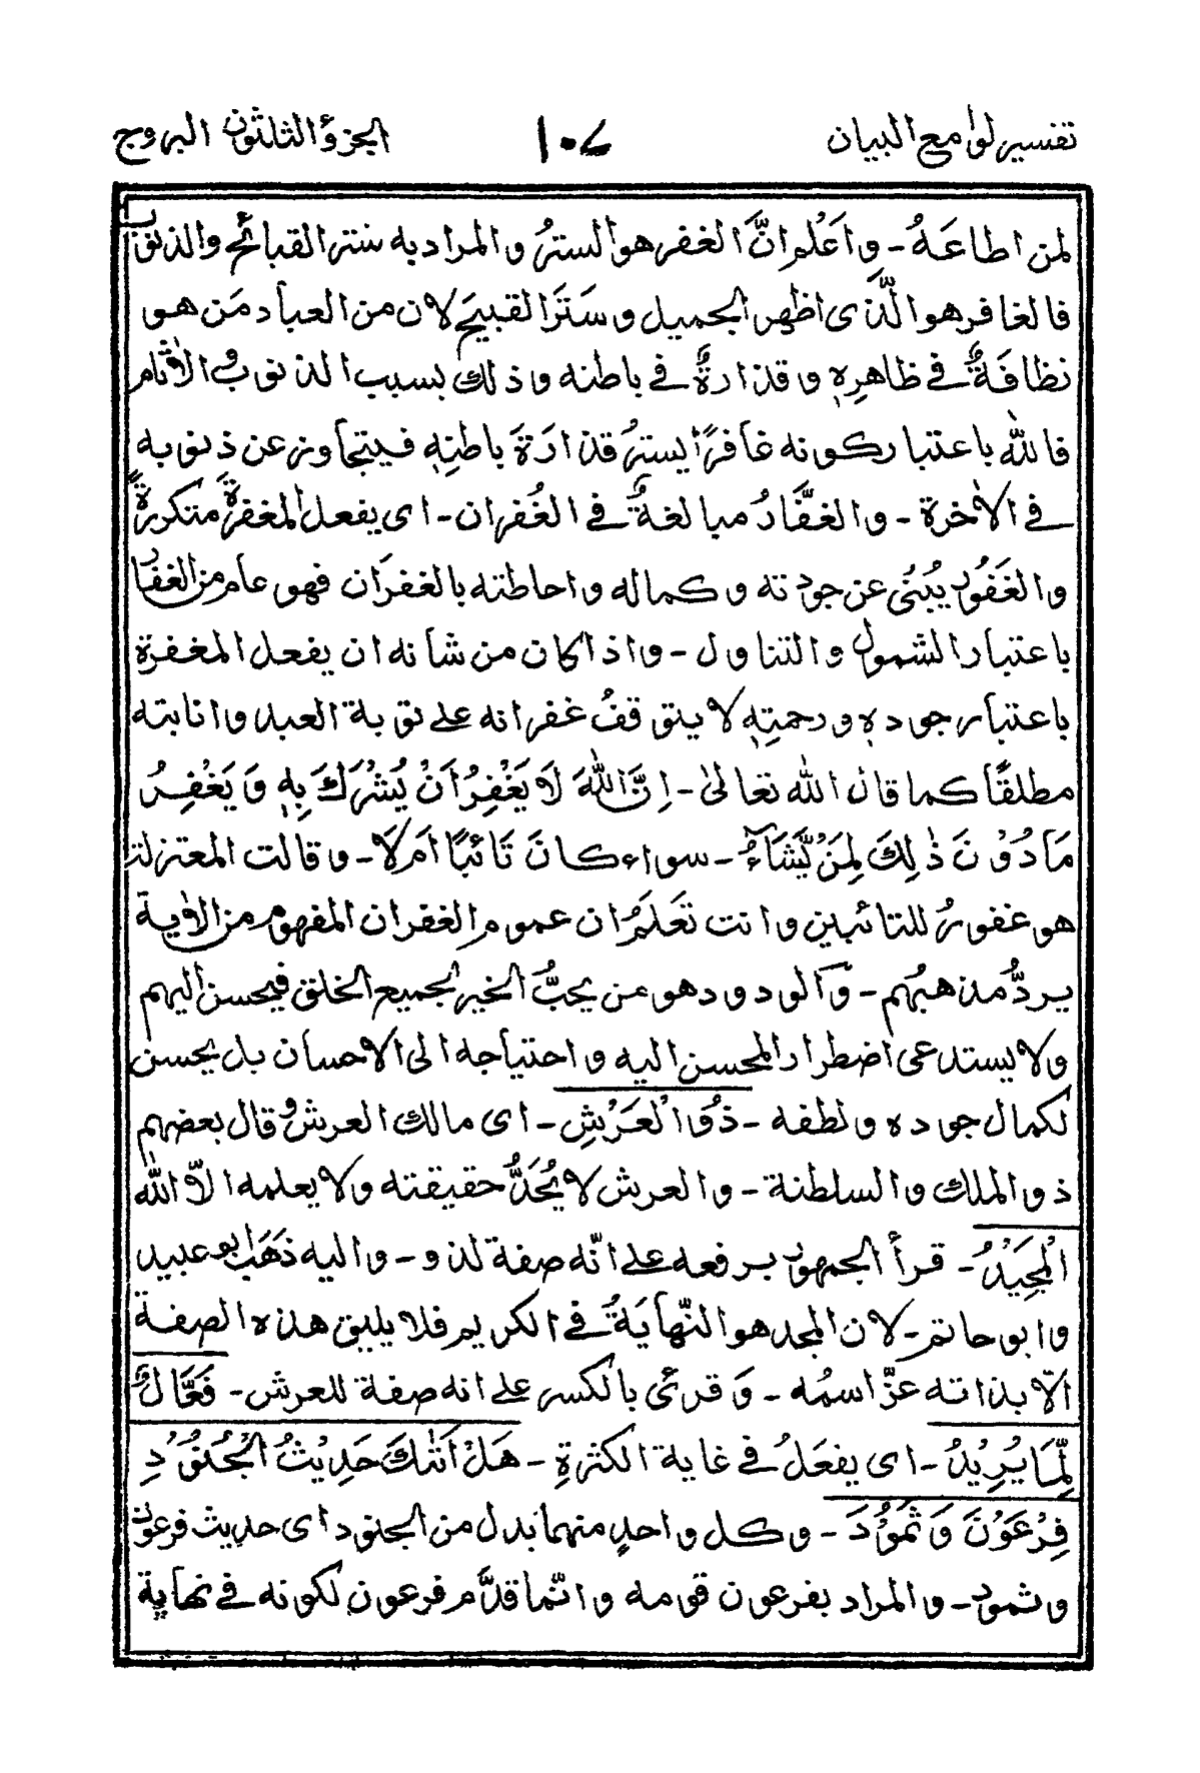 تفسير لوامع البيان ١٠٧ الجزؤ الثلثون البروج
لمن اطاعَهُ - واعَلُم انَّ الغفر هو السترُ والمراد به ستر القبائح والذنوب
فالغافر هو الَّذى اظهر الجميل و سَتَرَ القبيحَ لان من العباد مَن هو
نظافَةٌ فى ظاهرِهٖ و قذارةٌ فى باطنه و ذلك بسبب الذنوب و الاٰثام
فالله باعتبار كونه غافرًا يسترُ قذارَةَ باطنِهٖ فيتجاوز عن ذنوبه
فى الاٰخرة - والغفَّارُ مبالغةٌ فى الغُفران - اى يفعل المغفرةَ متكررةً
والغَفُورُ يُبنُى عن جودته و كماله و احاطته بالغفرَان فهو عام من الغفار
باعتبار الشمول والتناول - واذا كان من شانه ان يفعل المغفرة
باعتبار جوده و رحمتِهٖ لا يتوقفُ غفرانه على توبة العبد و انابته
مطلقًا كما قال الله تعالىٰ - اِنَّ اللّٰهَ لَا يَغْفِرُ اَنْ يُّشْرَكَ بِهٖ وَ يَغْفِرُ
مَا دُوْنَ ذٰلِكَ لِمَنْ يَّشَآءُ - سواء كانَ تَائبًا اَم لَا - و قالت المعتزلة
هو غفورٌ للتائبين و انت تَعَلَمُ ان عموم الغفران المفهوم من الاٰية
يردُّ مذهبُهم - وَالودود هو من يحبُّ الخير لجميع الخلق فيحسن اليهم
ولا يستدعى اضطرار المحسن اليه و احتياجه الى الاحسان بل يحسن
لكمال جوده و لطفه - ذُو الْعَرْشِ - اى مالك العرش و قال بعضهم
ذو الملك والسلطنة - والعرش لا يُحَدُّ حقيقته ولا يعلمه الّا الله
الْمَجِيْدُ - قرأ الجمهور برفعه على انّه صفة لذو - واليه ذهَب ابو عبيد
و ابو حاتم - لان المجد هو النّهايَةُ فى الكريم فلا يليق هذه الصفة
الّا بذاته عزّ اسمُه - وَ قرئ بالكسر على انه صفة للعرش - فَعَّالٌ
لِّمَا يُرِيْدُ - اى يفعَلُ فى غاية الكثرةِ - هَلْ اَتٰىكَ حَدِيْثُ الْجُنُوْدِ
فِرْعَوْنَ وَ ثَمُوْدَ - و كل واحدٍ منهما بدل من الجنود اى حديث فرعون
و ثمود - والمراد بفرعون قومه و انّما قدّم فرعون لكونه فى نهاية